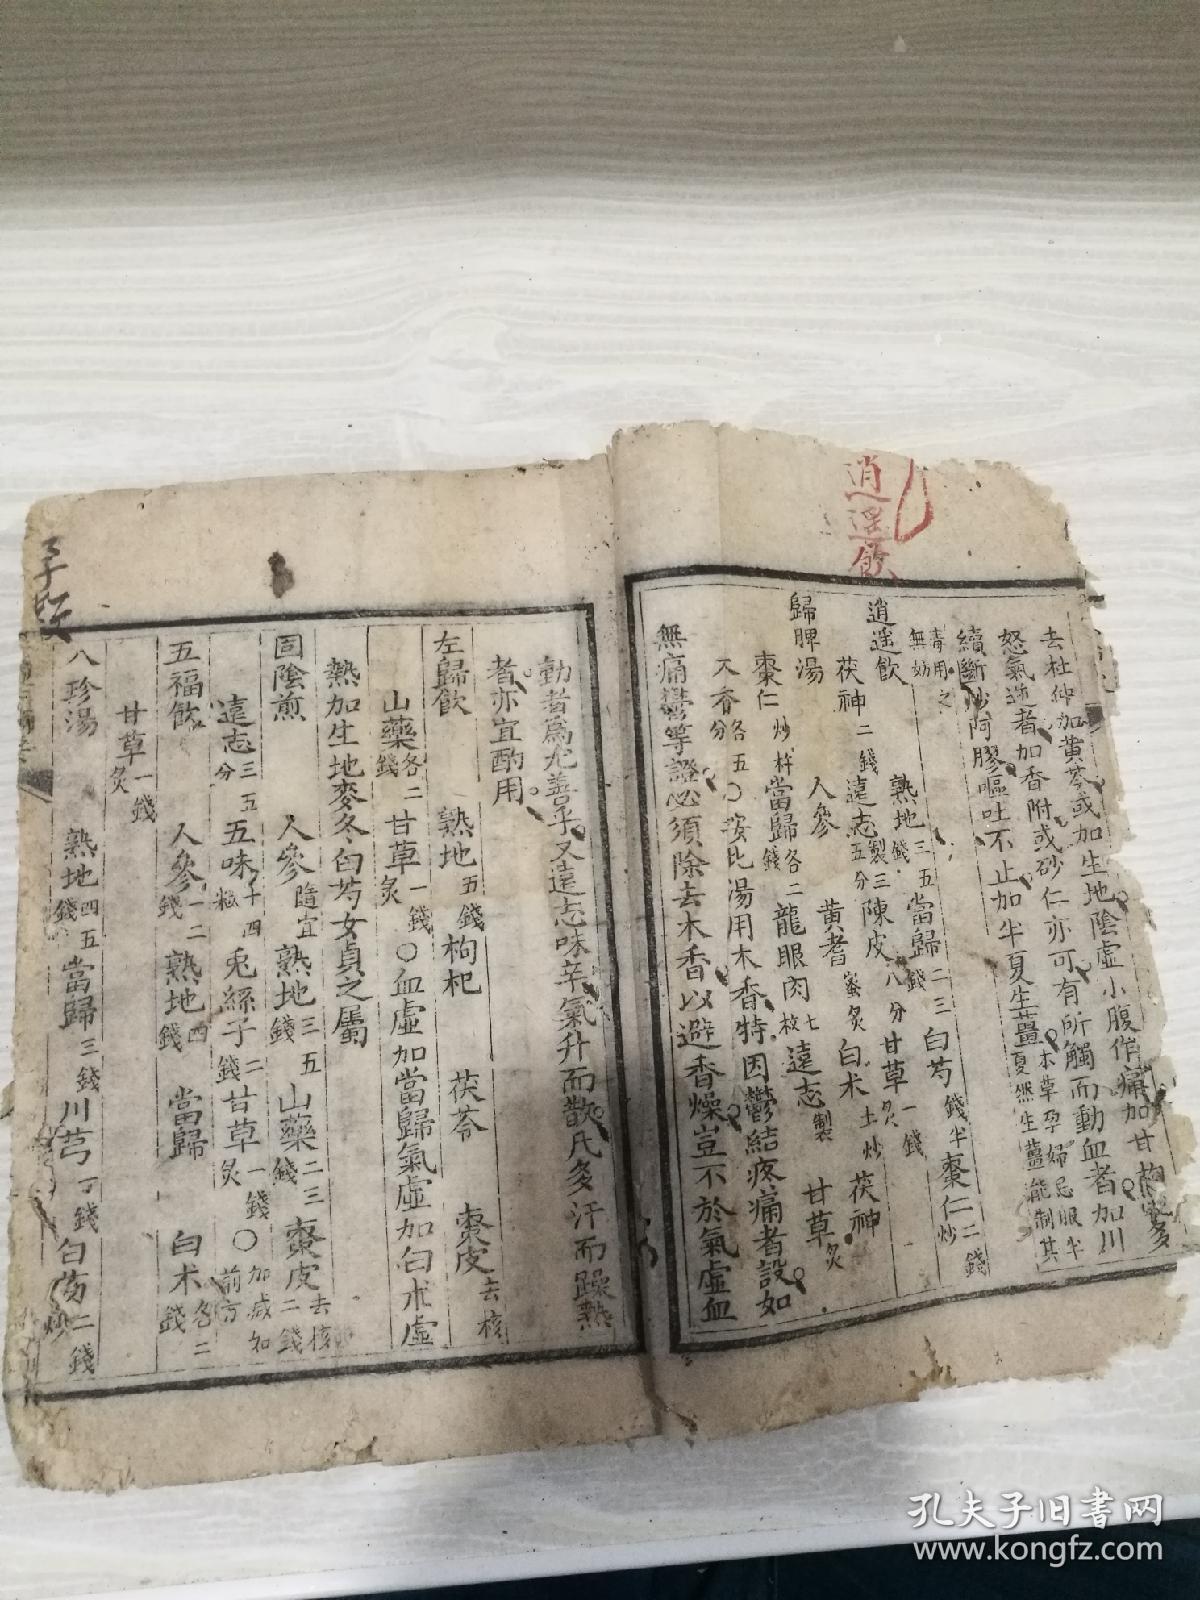 逍遥飲
去杜仲加黄芩或加生地陰虛小腹作痛加甘枸
怒氣過者加香附或砂仁亦可有所觸而動血者加川
續斷炒阿膠嘔吐不止加半夏生薑本草孕婦忌服半夏然生薑能制其
毒用之無妨
逍遥飲 熟地三五錢當歸二三錢白芍錢半棗仁二錢炒
茯神二錢遠志製三五分陳皮八分甘草炙一錢
歸脾湯 人參 黄耆蜜炙白术土炒茯神
棗仁炒杵當歸各二錢龍眼肉七枚遠志製 甘草炙
木香各五分〇按此湯用木香特因鬱結疼痛者設如
無痛鬱等證必須除去木香以避香燥豈不於氣虛血
動者爲尤善乎又遠志味辛氣升而散凡多汗而躁熱
者亦宜酌用
左歸飲 熟地五錢枸杞 茯苓 棗皮去核
山藥各二錢甘草一錢炙〇血虛加當歸氣虛加白朮虛
熱加生地麥冬白芍女貞之屬
固陰煎 人參隨宜熟地三五錢山藥二三錢棗皮去核二錢
遠志三五分五味子十四粒兎絲子二錢甘草一錢炙〇加减如前方
五福飲 人參一二錢熟地四錢 當歸 白术各二錢
甘草一錢炙
八珍湯 熟地四五錢當歸三錢川芎丁錢白芍二錢炒
孔夫子旧书网
www.kongfz.com